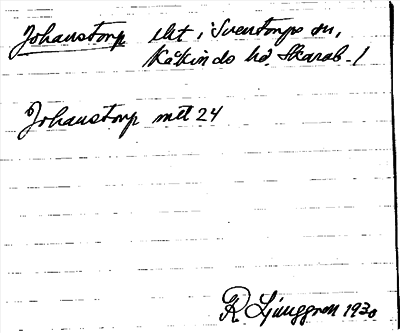 Johanstorp lht i Svenstorps sn,
Kåkinds hd Skarab. l
Johanstorp mtl 24
R Ljunggren 1930